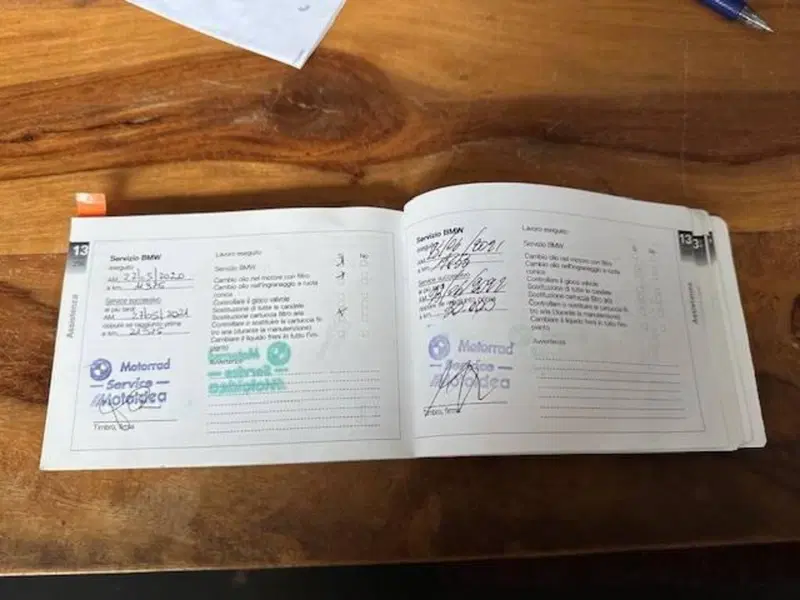 13
Assistenza
Servizio BMW
eseguito
AM 27/05/2020
a km
Service successivo
al più tardi
AM 27/05/2021
oppure se raggiunto prima
a km 21375
Motorrad
Service
Motoidea
Timbro, firma
Lavoro eseguito:
Sì No
Servizio BMW
Cambio olio nel motore con filtro
Cambio olio nell'ingranaggio a ruota
conica
Controllare il gioco valvole
Sostituzione di tutte le candele
Sostituzione cartuccia filtro aria
Controllare o sostituire la cartuccia fil
tro aria (durante la manutenzione)
Cambiare il liquido freni in tutto l'im-
pianto
Avvertenza
Motorrad
Service
Motoidea
13
Servizio BMW
eseguito
/06/2021
a km
Service successivo
al più tardi
oppure se raggiunto prima
a km
Motorrad
Service
Motoidea
Timbro, firma
Lavoro eseguito:
Servizio BMW
Cambio olio nel motore con filtro
Cambio olio nell'ingranaggio a ruota
conica
Controllare il gioco valvole
Sostituzione di tutte le candele
Sostituzione cartuccia filtro aria
Controllare o sostituire la cartuccia fil
tro aria (durante la manutenzione)
Cambiare il liquido freni in tutto l'im-
pianto
Avvertenza
Assistenza